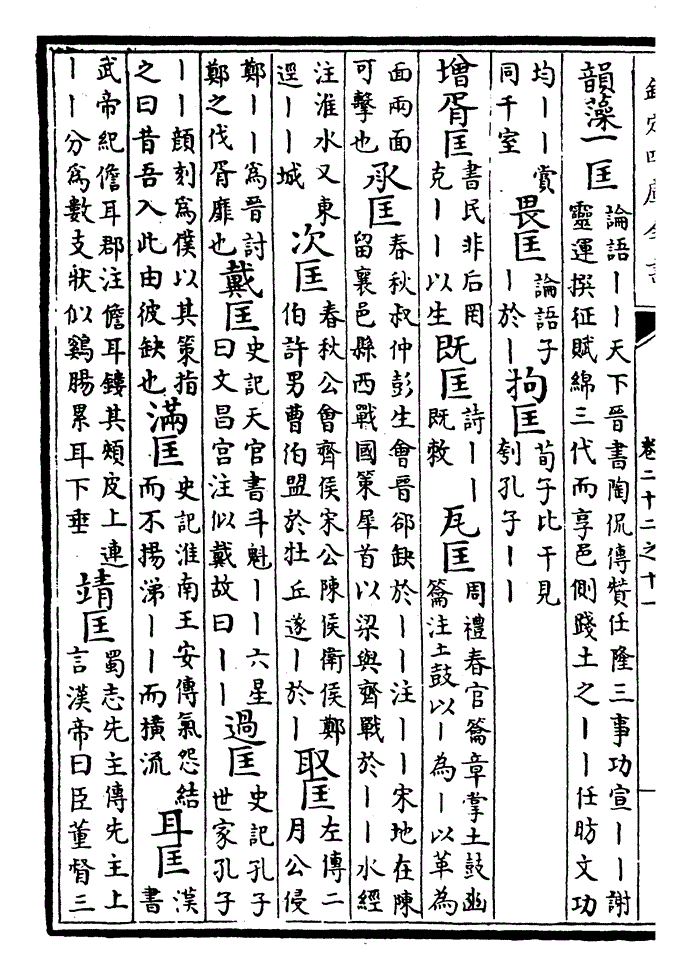 欽定四庫全書 卷二十二之十一
韻藻一匡 論語丨丨天下晉書陶侃傳贊任隆三事功宣丨丨謝靈運撰征賦綿三代而享邑側踐土之丨丨任昉文功
均丨丨賞同千室 畏匡 論語子丨於丨 拘匡 荀子比干見刳孔子丨丨
增胥匡 書民非后罔克丨丨以生 既匡 詩丨丨既敕 瓦匡 周禮春官籥章掌土鼓豳籥注土鼓以丨為丨以革為
面兩面可擊也 承匡 春秋叔仲彭生會晉郤缺於丨丨注丨丨宋地在陳留襄邑縣西戰國策犀首以梁與齊戰於丨丨水經
注淮水又東逕丨丨城 次匡 春秋公會齊侯宋公陳侯衛侯鄭伯許男曹伯盟於牡丘遂丨於丨 取匡 左傳二月公侵
鄭丨丨爲晉討鄭之伐胥靡也 戴匡 史記天官書斗魁丨丨六星曰文昌宮注似戴故曰丨丨 過匡 史記孔子世家孔子
丨丨顔刻爲僕以其策指之曰昔吾入此由彼缺也 滿匡 史記淮南王安傳氣怨結而不揚涕丨丨而橫流 耳匡 漢書
武帝紀儋耳郡注儋耳鏤其頰皮上連丨丨分爲數支狀似鷄腸累耳下垂 靖匡 蜀志先主傳先主上言漢帝曰臣董督三